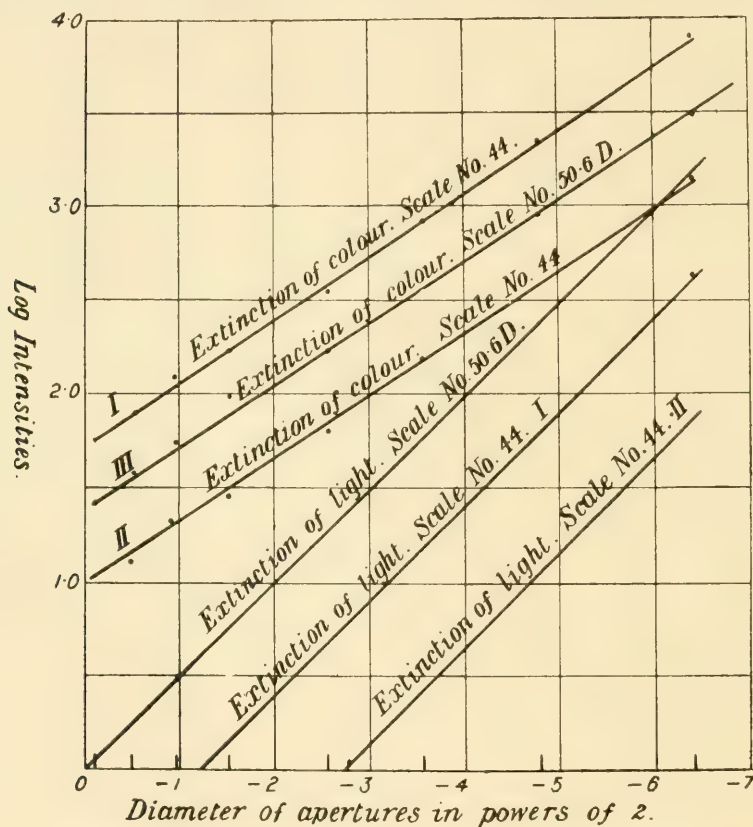 4·0
3·0
2·0
1·0
Log Intensities.
I
Extinction of colour. Scale No. 44.
III
Extinction of colour. Scale No. 50·6 D.
II
Extinction of colour. Scale No. 44
Extinction of light. Scale No. 50·6 D.
Extinction of light. Scale No. 44. I
Extinction of light. Scale No. 44. II
0 -1 -2 -3 -4 -5 -6 -7
Diameter of apertures in powers of 2.